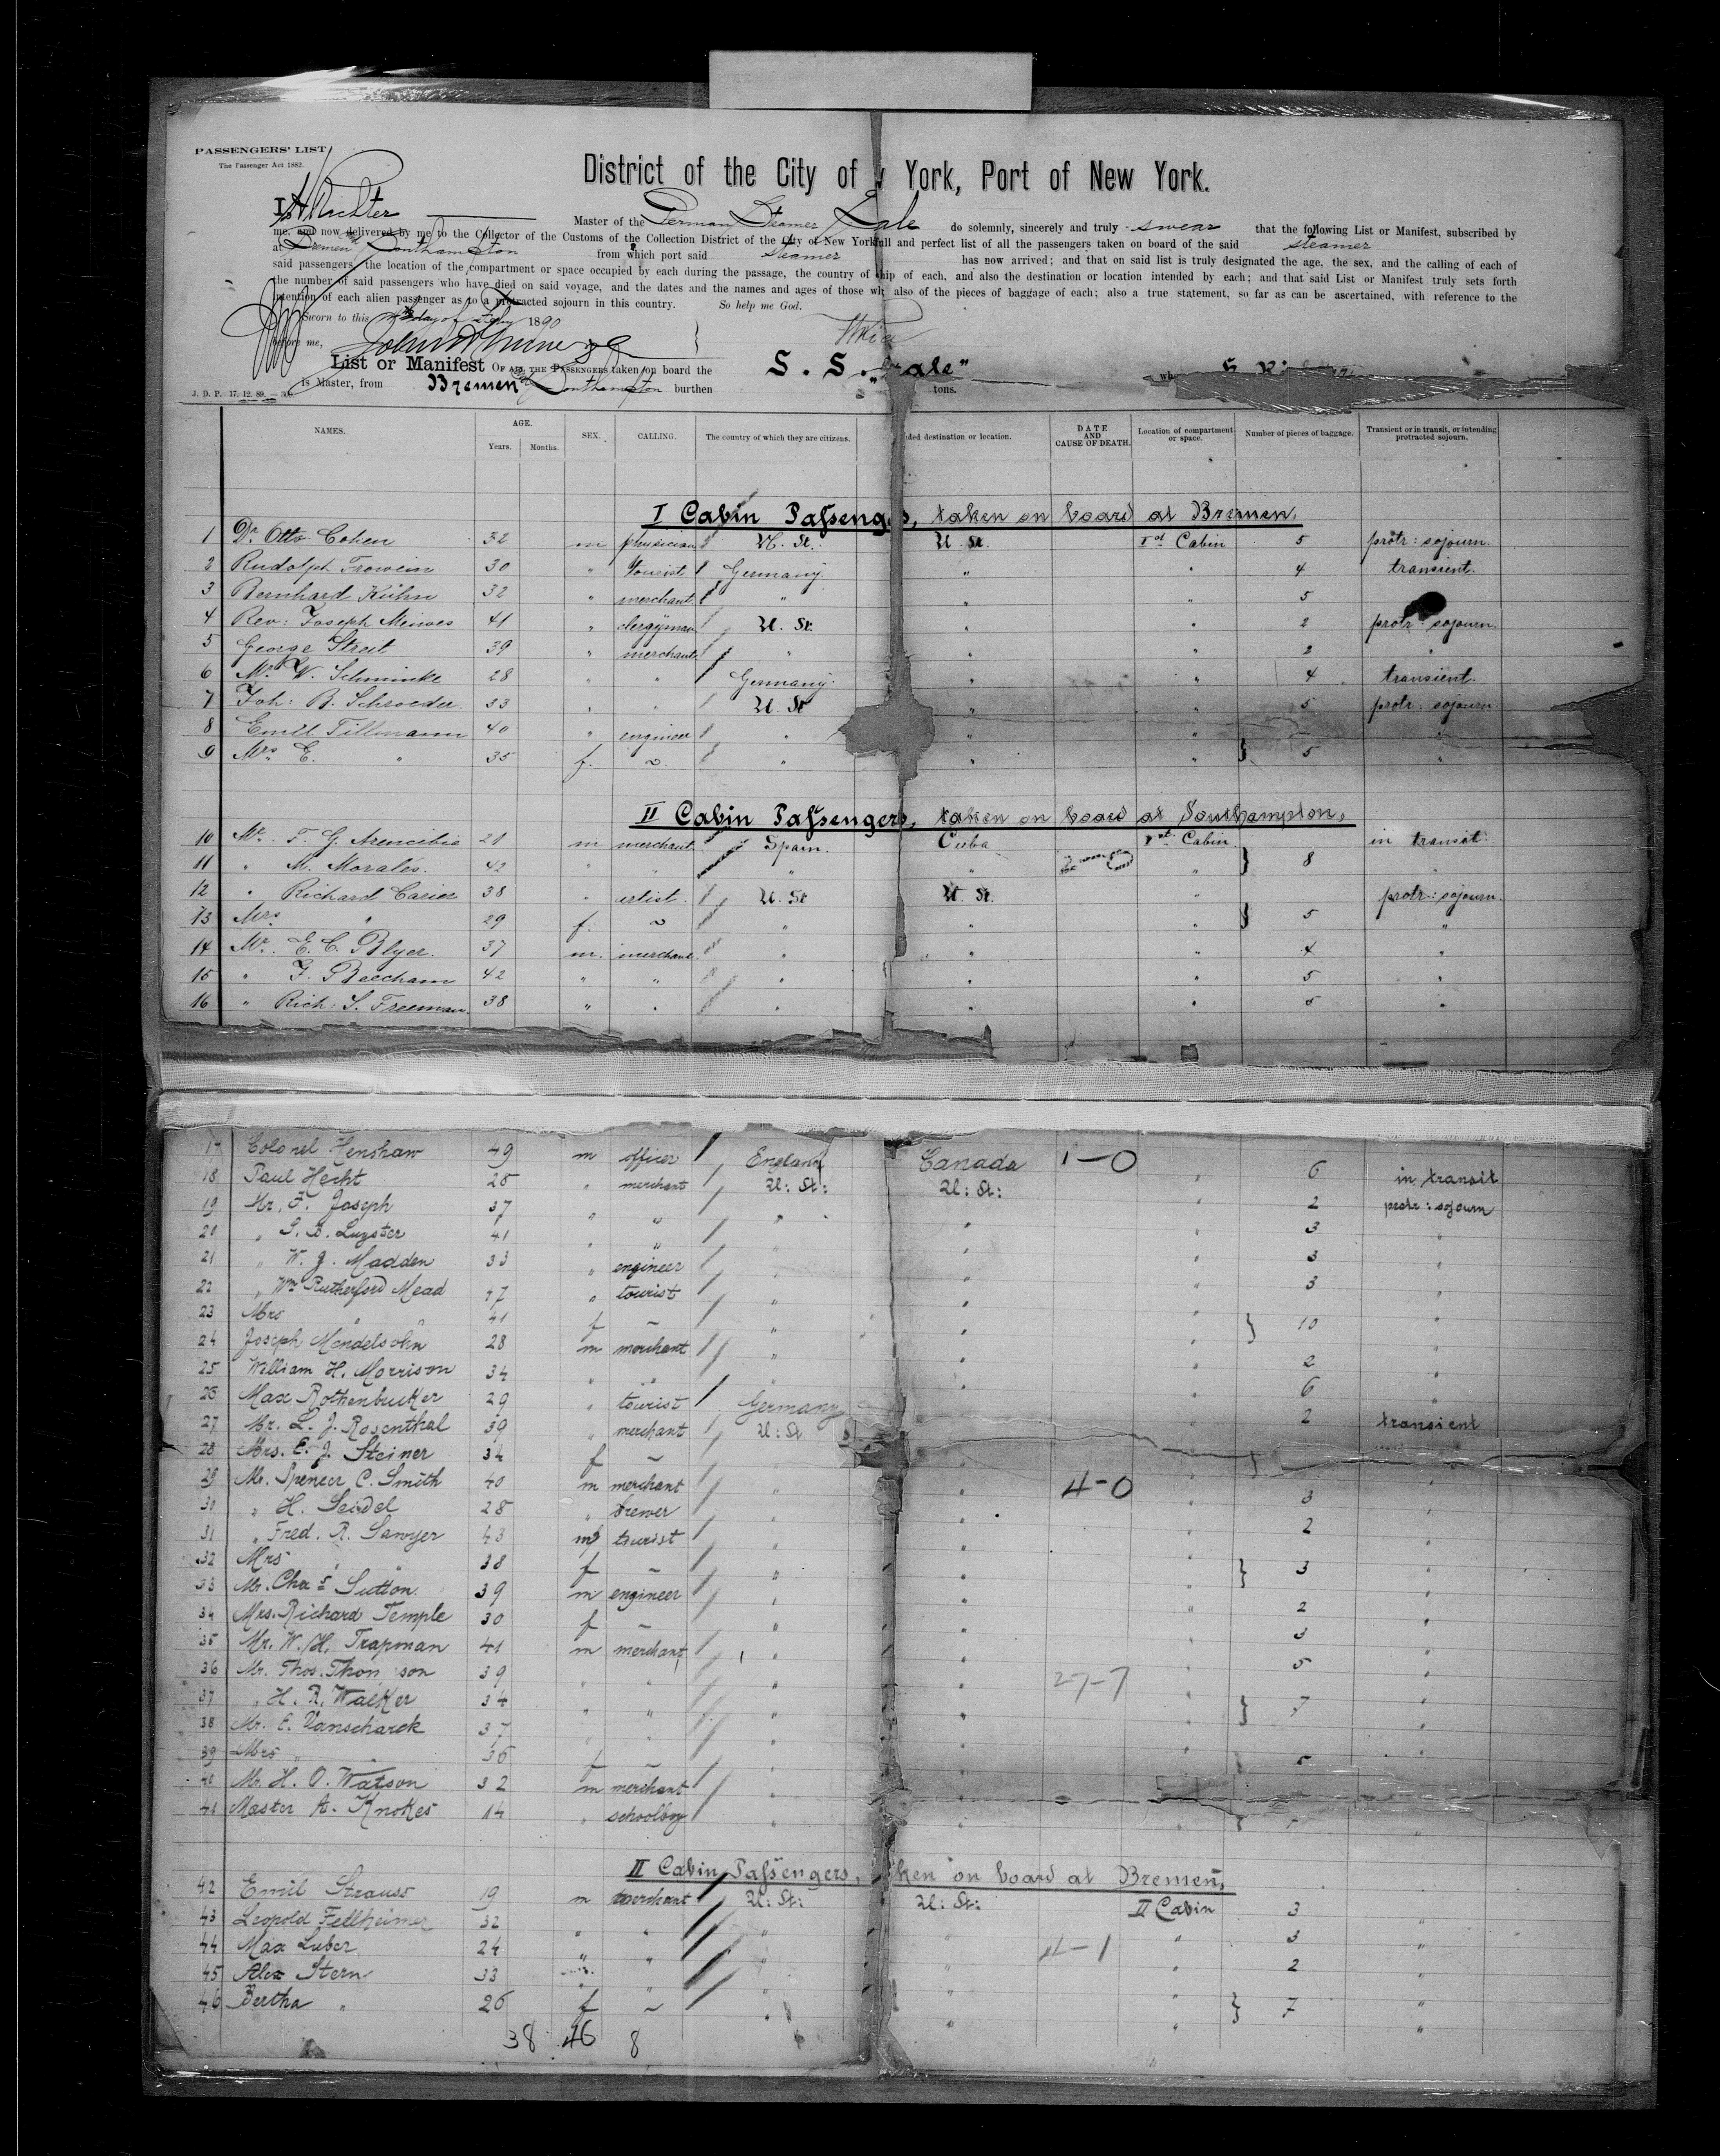 PASSENGERS' LIST
The Passenger Act 1882.
District of the City of York, Port of New York.
I, Richter Master of the German Steamer do solemnly, sincerely and truly swear that the following List or Manifest, subscribed by
me, and now delivered by me to the Collector of the Customs of the Collection District of the City of New York full and perfect list of all the passengers taken on board of the said steamer
at Bremen Southampton from which port said steamer has now arrived; and that on said list is truly designated the age, the sex, and the calling of each of
said passengers, the location of the compartment or space occupied by each during the passage, the country of ship of each, and also the destination or location intended by each; and that said List or Manifest truly sets forth
the number of said passengers who have died on said voyage, and the dates and the names and ages of those also of the pieces of baggage of each; also a true statement, so far as can be ascertained, with reference to the
intention of each alien passenger as to a protracted sojourn in this country. So help me God.
Sworn to this day of 1890
before me,
List or Manifest OF ALL THE PASSENGERS taken on board the S. S. ale"
is Master, from Bremen Southampton burthen tons.
J. D. P. 17. 12. 89.
NAMES. AGE. Years. Months. SEX. CALLING. The country of which they are citizens. ded destination or location. DATE AND CAUSE OF DEATH. Location of compartment or space. Number of pieces of baggage. Transient or in transit, or intending protracted sojourn.
I Cabin Passengers, taken on board at Bremen.
1 Dr. Otto Cohen 32 m physician U. St. U. St. Ist Cabin 5 protr: sojourn.
2 Rudolph Frowein 30 " tourist Germany " " 4 transient.
3 Bernhard Kühn 32 " merchant " " " 5
4 Rev: Joseph Meiwes 41 " clergyman U. St. " " 2 protr: sojourn.
5 George Streit 39 " merchant " " " 2 "
6 Mr. W. Schminke 28 " " Germany. " " 4 transient.
7 Joh: B. Schroeder 33 " " U. St " " 5 protr: sojourn.
8 Emil Tillmann 40 " engineer " " " "
9 Mrs. E. " 35 f. ~ " " " } 5 "
II Cabin Passengers, taken on board at Southampton,
10 Mr. F. G. Arencibia 21 m merchant Spain. Cuba Ist Cabin. in transit.
11 " M. Morales. 42 " " " " 2-0 " } 8
12 " Richard Carier 38 " artist. U. St U. St. " protr: sojourn.
13 Mrs. " 29 f. ~ " " " } 5 "
14 Mr. E. C. Blyer. 37 m. merchant " " " 4 "
15 " F. Beecham 42 " " " " " 5 "
16 " Rich: S. Freeman 38 " " " " " 5 "
17 Colonel Henshaw 49 m officer England Canada 1-0 6 in transit
18 Paul Hecht 25 " merchant U: St: U: St: " 2 protr: sojourn
19 Mr. F. Joseph 37 " " " " " 3 "
20 " S. B. Luyster 41 " " " " " 3 "
21 " W. J. Madden 33 " engineer " " " 3 "
22 " Wm Rutherford Mead 47 " tourist " " "
23 Mrs " " 41 f ~ " " " } 10 "
24 Joseph Mendelsohn 28 m merchant " " " 2 "
25 William H. Morrison 34 " " " " " 6 "
26 Max Rothenbucker 29 " tourist Germany " " 2 transient
27 Mr. L. J. Rosenthal 39 " merchant U: St
28 Mrs. E. J. Steiner 34 f ~ " " }
29 Mr. Spencer C. Smith 40 m merchant " " 4-0 " 3 "
30 " H. Seidel 28 " brewer " " " 2 "
31 " Fred. R. Sawyer 43 m tourist " " "
32 Mrs " " 38 f ~ " " " } 3 "
33 Mr. Chas Sutton. 39 m engineer " " " 2 "
34 Mrs. Richard Temple 30 f ~ " " " 3 "
35 Mr. W. H. Trapman 41 m merchant " " " 5 "
36 Mr. Thos. Thom son 39 " " " " 27-7 "
37 " H. R. Walker 34 " " " " " } 7 "
38 Mr. E. Vanscharck 37 " " " " "
39 Mrs " " 36 f ~ " " } 5
40 Mr. H. O. Watson 32 m merchant " "
41 Master A. Knokes 14 " schoolboy " " " } "
II Cabin Passengers, ken on board at Bremen,
42 Emil Strauss 19 m merchant U: St: U: St: II Cabin 3 "
43 Leopold Fellheimer 32 " " " " " 3 "
44 Max Luber 24 " " " " 4-1 " 2 "
45 Alex Stern 33 " " " " "
46 Bertha " 26 f ~ " " " } 7 "
38 46 8